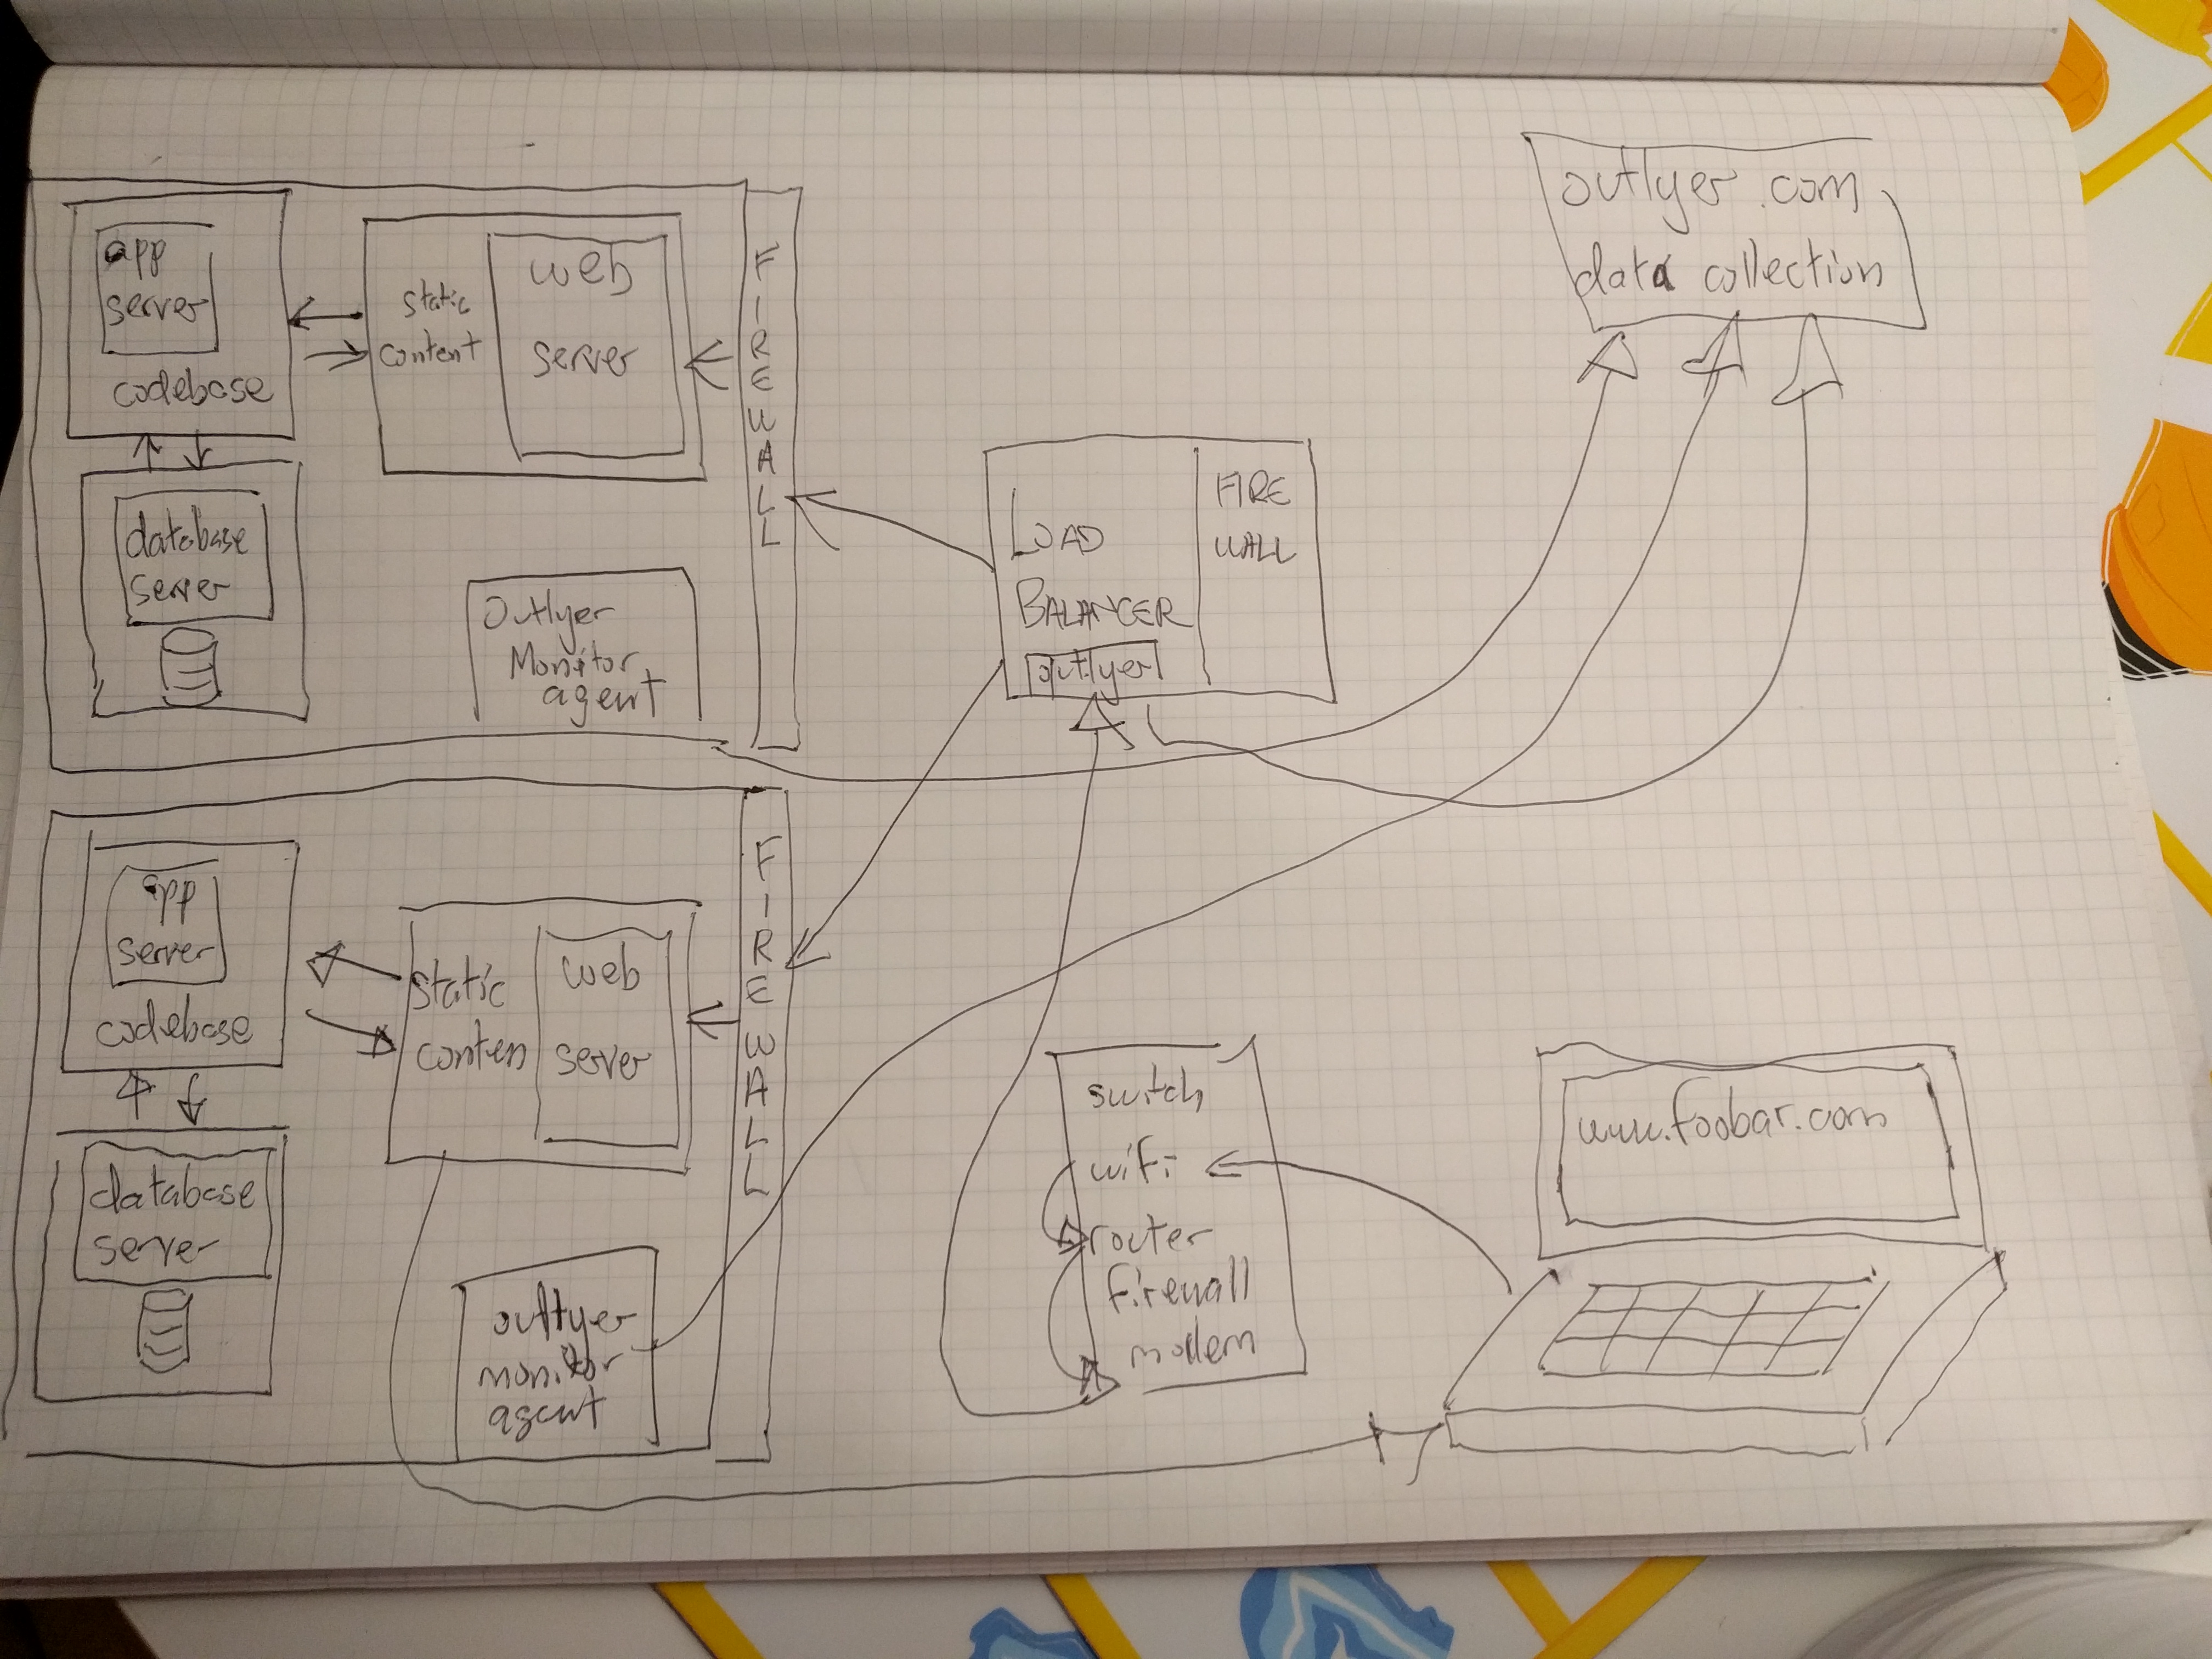 app
server
codebase
static
content
web
server
FIREWALL
database
server
Outlyer
Monitor
agent
LOAD
BALANCER
outlyer
FIRE
WALL
outlyer.com
data collection
app
server
codebase
static
conten
web
server
FIREWALL
database
server
outlyer
monitor
agent
switch
wifi
router
firewall
modem
www.foobar.com